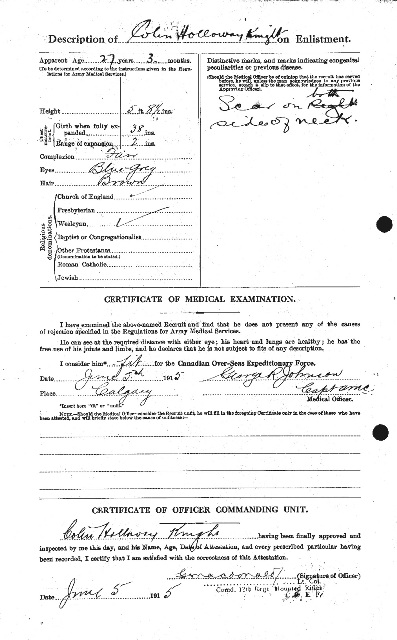 Description of Colin Holloway Knight on Enlistment.
Apparent Age 27 years 3 months.
(To be determined according to the instructions given in the Regulations for Army Medical Services.)
Height 5 ft. 8½ ins.
Chest measurement
Girth when fully expanded 38 ins.
Range of expansion 2 ins.
Complexion Fair
Eyes Blue-Grey
Hair Brown
Religious denominations.
Church of England
Presbyterian
Wesleyan
Baptist or Congregationalist
Other Protestants
(Denomination to be stated.)
Roman Catholic
Jewish
Distinctive marks, and marks indicating congenital
peculiarities or previous disease.
(Should the Medical Officer be of opinion that the recruit has served
before, he will, unless the man acknowledges to any previous
service, attach a slip to that effect, for the information of the
Approving Officer).
both
Scar on Right
sides of neck.
CERTIFICATE OF MEDICAL EXAMINATION.
I have examined the above-named Recruit and find that he does not present any of the causes
of rejection specified in the Regulations for Army Medical Services.
He can see at the required distance with either eye; his heart and lungs are healthy; he has the
free use of his joints and limbs, and he declares that he is not subject to fits of any description.
I consider him* fit for the Canadian Over-Seas Expeditionary Force.
Date June 5th 1915 George R Johnson
Place Calgary Capt amc
Medical Officer.
*Insert here "fit" or "unfit."
NOTE.—Should the Medical Officer consider the Recruit unfit, he will fill in the foregoing Certificate only in the case of those who have
been attested, and will briefly state below the cause of unfitness:—
CERTIFICATE OF OFFICER COMMANDING UNIT.
Colin Holloway Knight having been finally approved and
inspected by me this day, and his Name, Age, Date of Attestation, and every prescribed particular having
been recorded, I certify that I am satisfied with the correctness of this Attestation.
(Signature of Officer)
Lt. Col.
Comd. 12th Regt Mounted Rifles
C. E. F.
Date June 5 1915